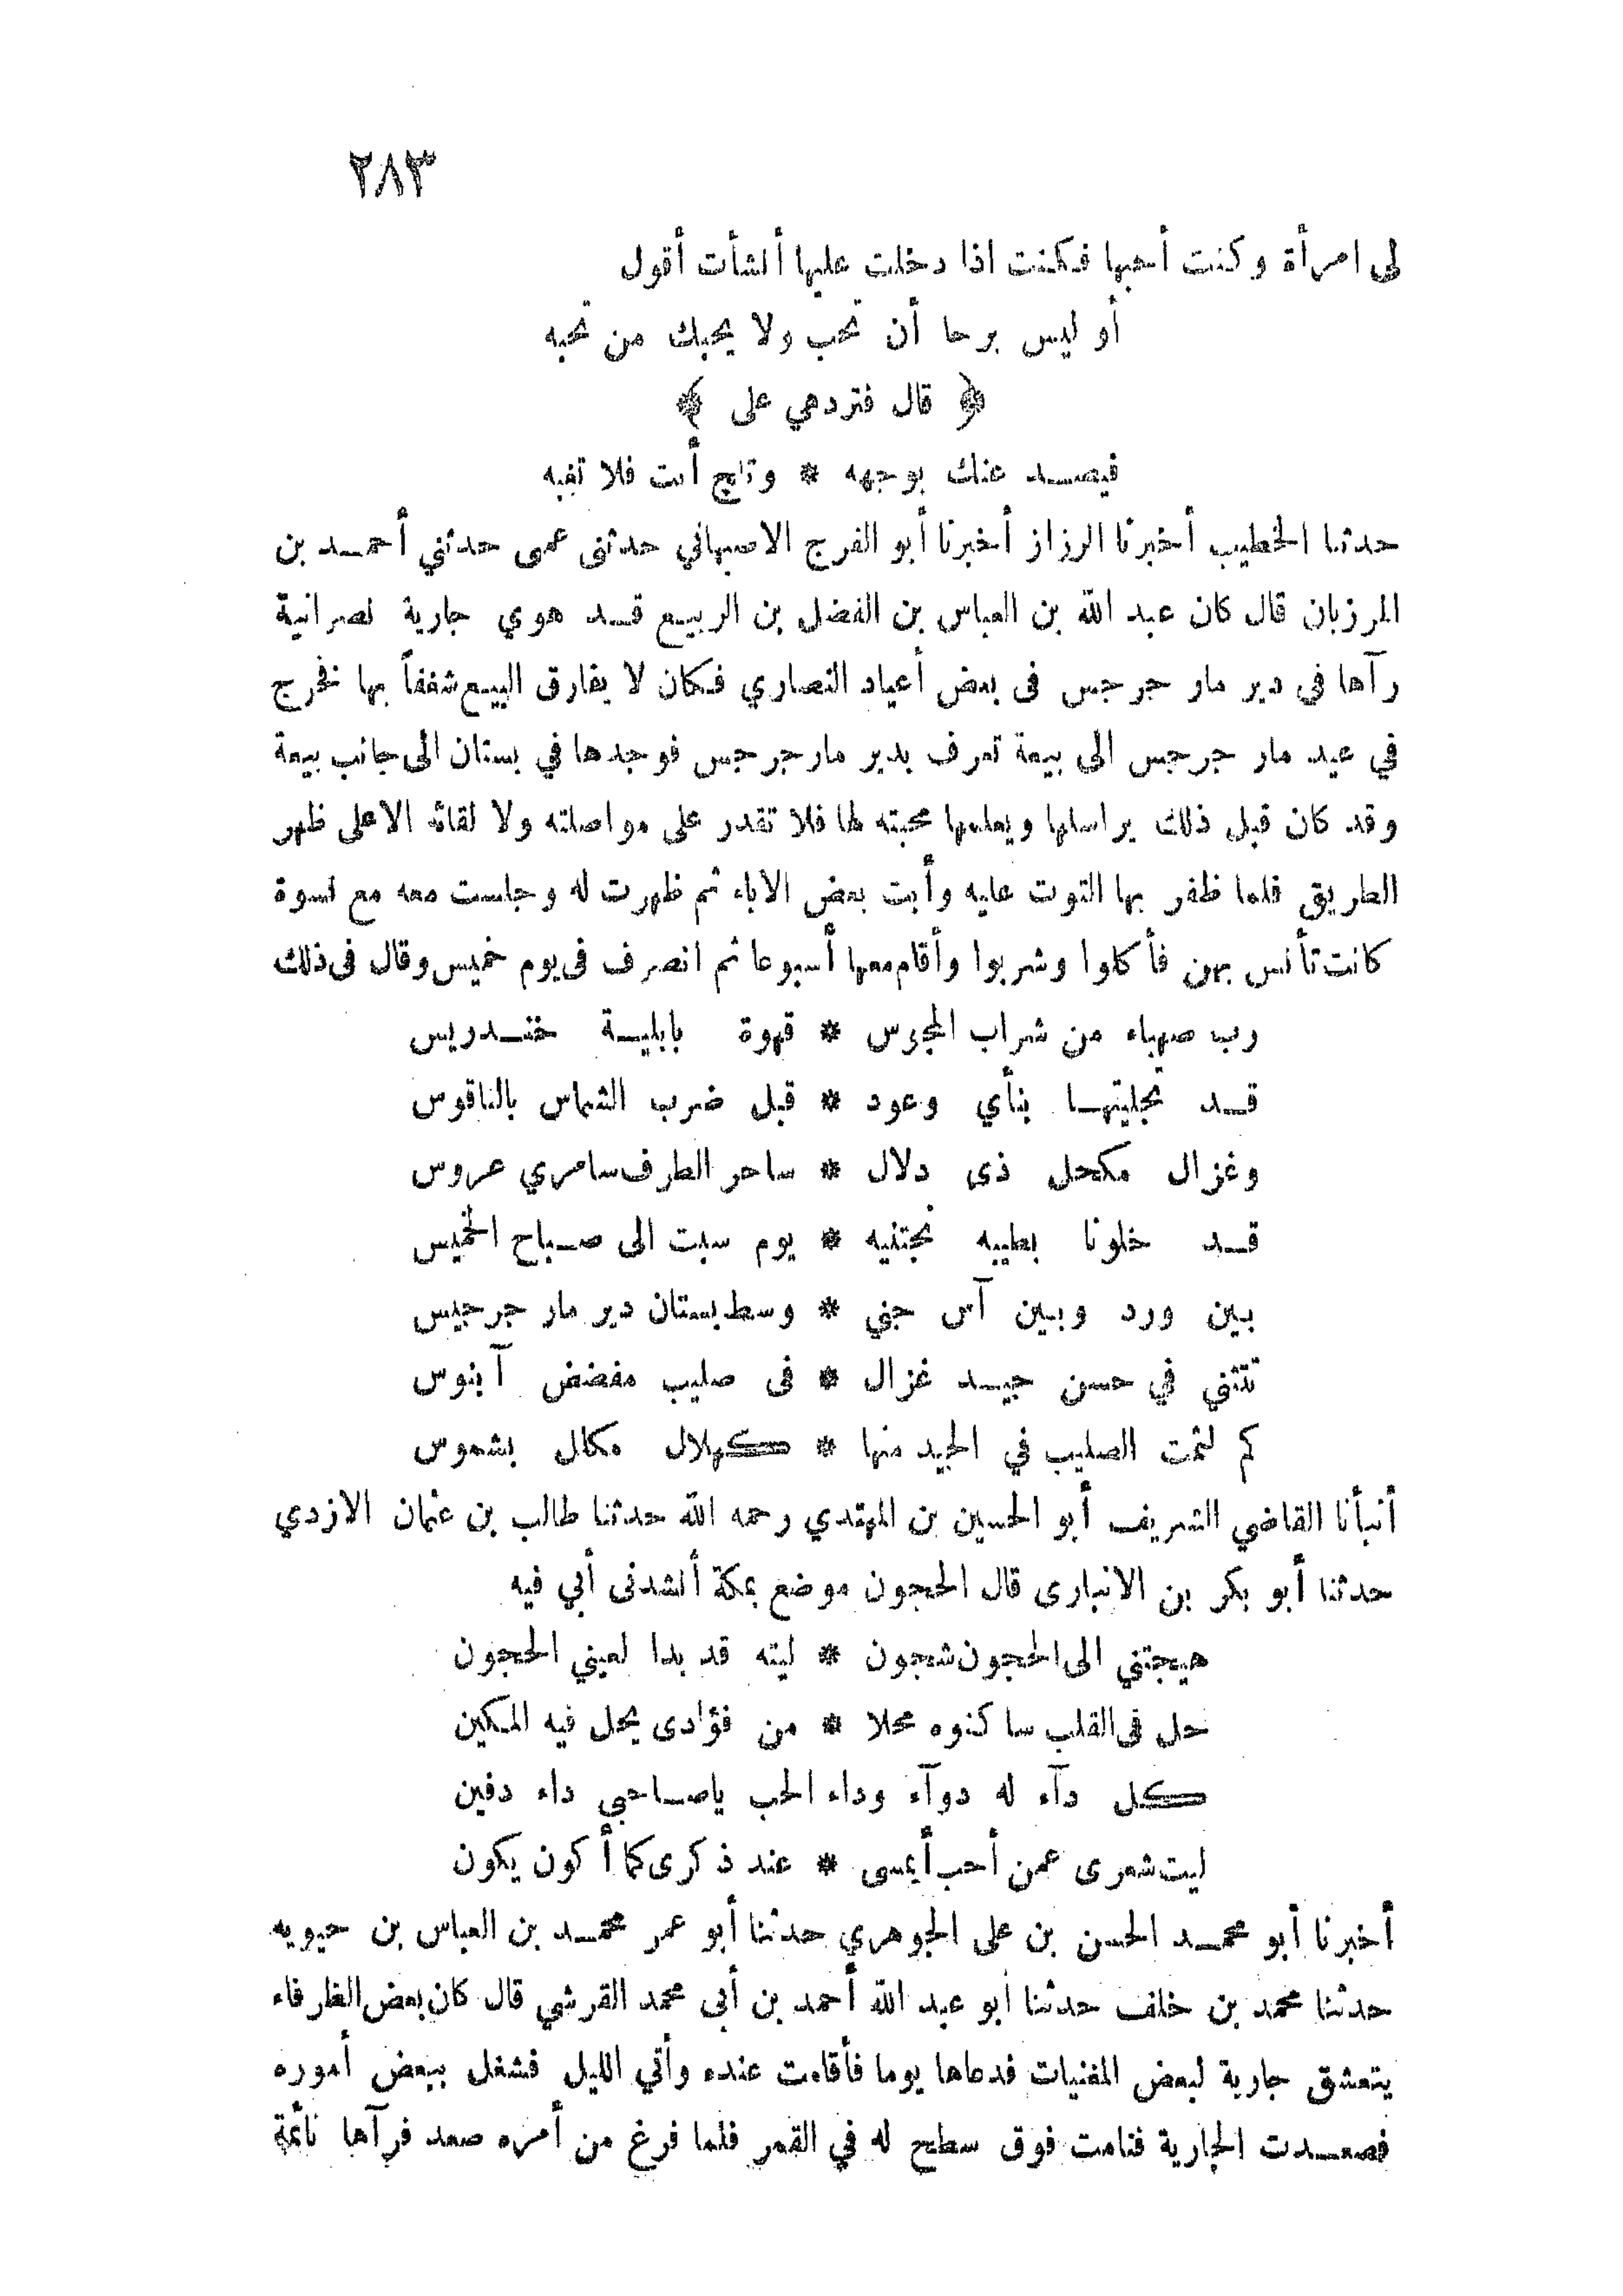 ٢٨٣
لى امرأة وكنت أحبها فكنت اذا دخلت عليها أنشأت أقول
أو ليس برحا أن تحب ولا يحبك من تحبه
﴿ قال فتردهي على ﴾
فيصد عنك بوجهه * وتلج أنت فلا تغبه
حدثنا الخطيب أخبرنا الرزاز أخبرنا أبو الفرج الاصبهاني حدثنى عمى حدثني أحمد بن
المرزبان قال كان عبد الله بن العباس بن الفضل بن الربيع قد هوي جارية نصرانية
رآها فى دير مار جرجس فى بعض أعياد النصاري فكان لا يفارق البيع شغفاً بها فخرج
في عيد مار جرجس الى بيعة تعرف بدير مارجرجس فوجدها في بستان الى جانب بيعة
وقد كان قبل ذلك يراسلها ويعلمها محبته لها فلا تقدر على مواصلته ولا لقائه الا على ظهر
الطريق فلما ظفر بها التوت عليه وأبت بعض الاباء ثم ظهرت له وجلست معه مع نسوة
كانت تأنس بهن فأكلوا وشربوا وأقام معها أسبوعا ثم انصرف فى يوم خميس وقال فى ذلك
رب صهباء من شراب المجوس * قهوة بابلية خندريس
قد تجليتها بنأي وعود * قبل ضرب الشماس بالناقوس
وغزال مكحل ذى دلال * ساحر الطرف سامري عروس
قد خلونا بطيبه نجتنيه * يوم سبت الى صباح الخميس
بين ورد وبين آس جني * وسط بستان دير مار جرجيس
تتثني في حسن جيد غزال * فى صليب مفضض آبنوس
كم لثمت الصليب في الجيد منها * كهلال مكلل بشموس
أنبأنا القاضي الشريف أبو الحسين بن المهتدي رحمه الله حدثنا طالب بن عثمان الازدي
حدثنا أبو بكر بن الانبارى قال الحجون موضع بمكة أنشدنى أبي فيه
هيجتني الى الحجون شجون * ليته قد بدا لعيني الحجون
حل فى القلب ساكنوه محلا * من فؤادى يحل فيه المكين
كل دآء له دوآء وداء الحب ياصاحبي داء دفين
ليت شعرى عمن أحب أيمسى * عند ذكرى كما أكون يكون
أخبرنا أبو محمد الحسن بن على الجوهري حدثنا أبو عمر محمد بن العباس بن حيويه
حدثنا محمد بن خلف حدثنا أبو عبد الله أحمد بن أبى محمد القرشي قال كان بعض الظرفاء
يتعشق جارية لبعض المغنيات فدعاها يوما فأقامت عنده وأتي الليل فشغل ببعض أموره
فصعدت الجارية فنامت فوق سطح له في القمر فلما فرغ من أمره صعد فرآها نائمة